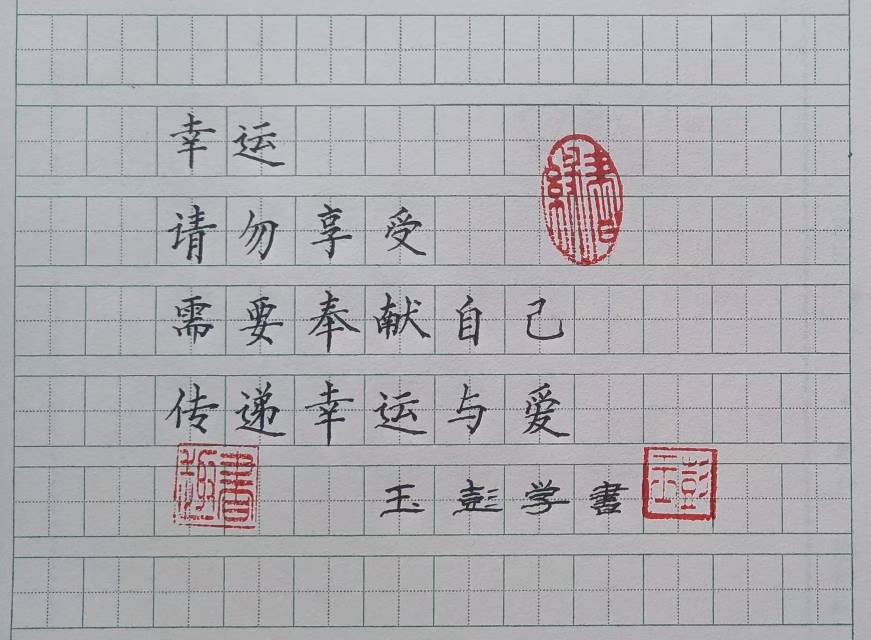 幸运
请勿享受
需要奉献自己
传递幸运与爱
玉彭学書